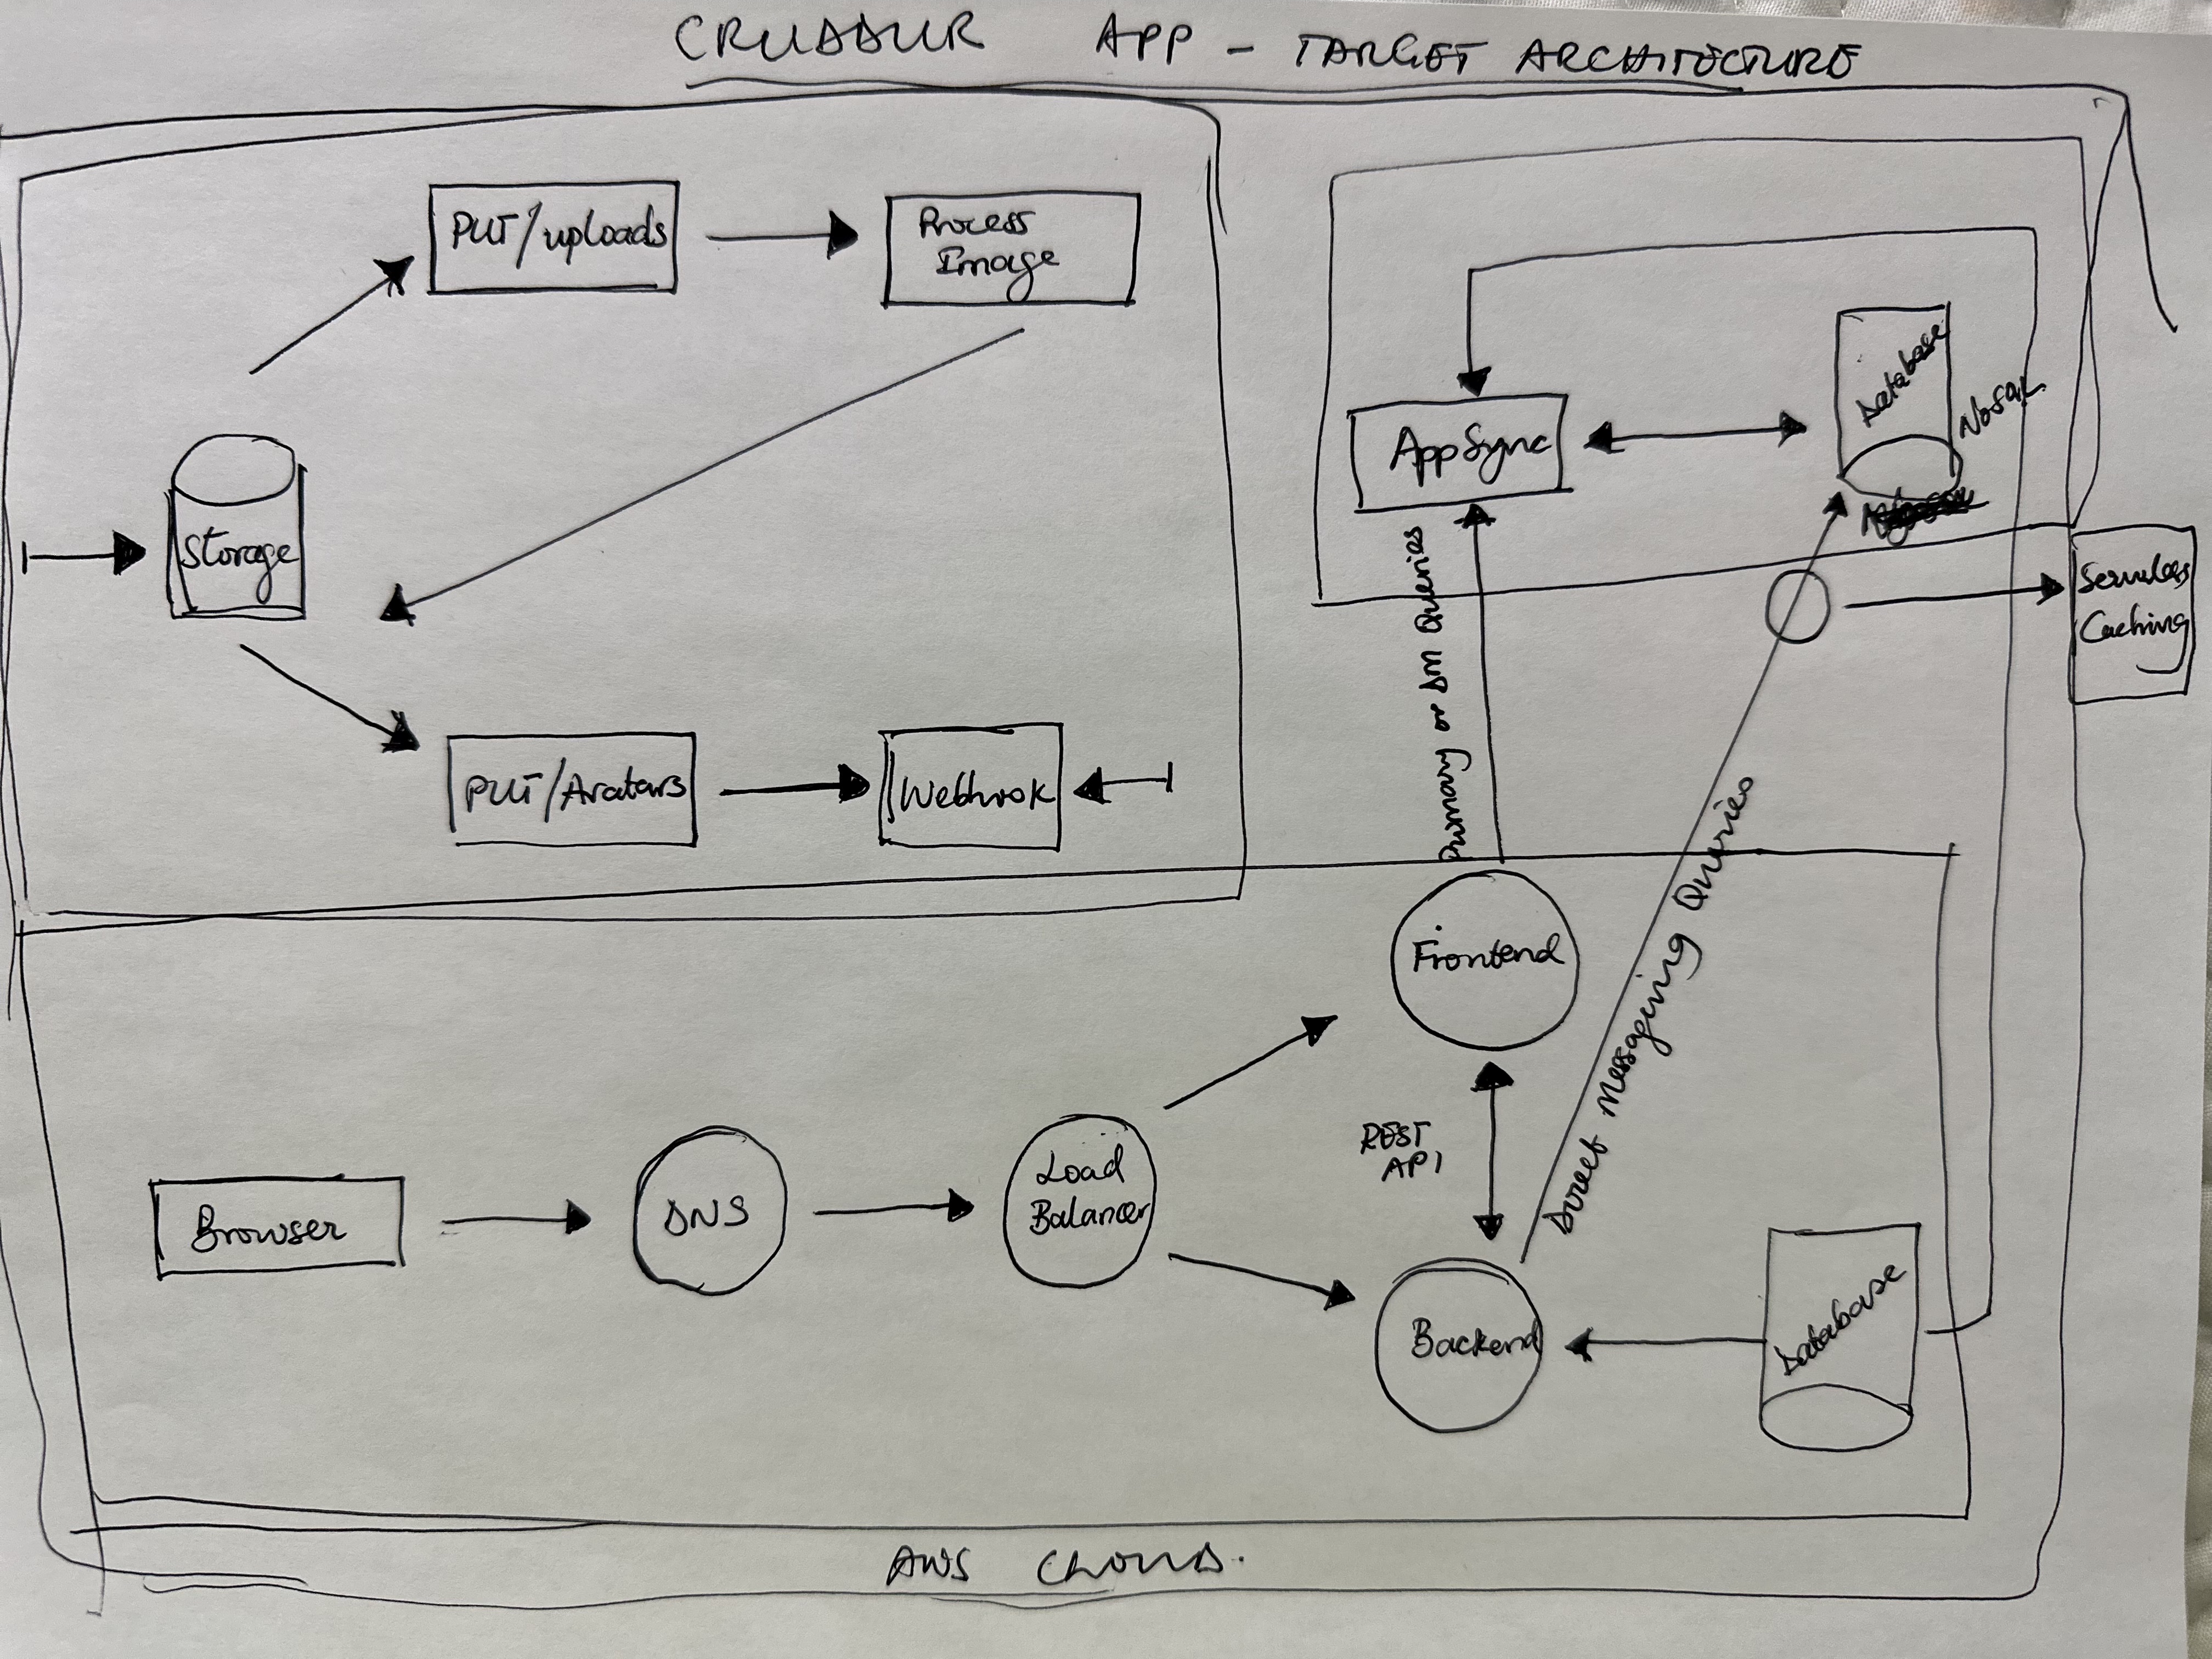 CRUDDUR APP - TARGET ARCHITECTURE
PUT/uploads
Process
Image
Storage
PUT/Avatars
Webhook
AppSync
Database
NoSQL
Serverless
Caching
Primary or DM Queries
Direct Messaging Queries
Frontend
REST
API
Browser
DNS
Load
Balancer
Backend
Database
AWS CLOUD.